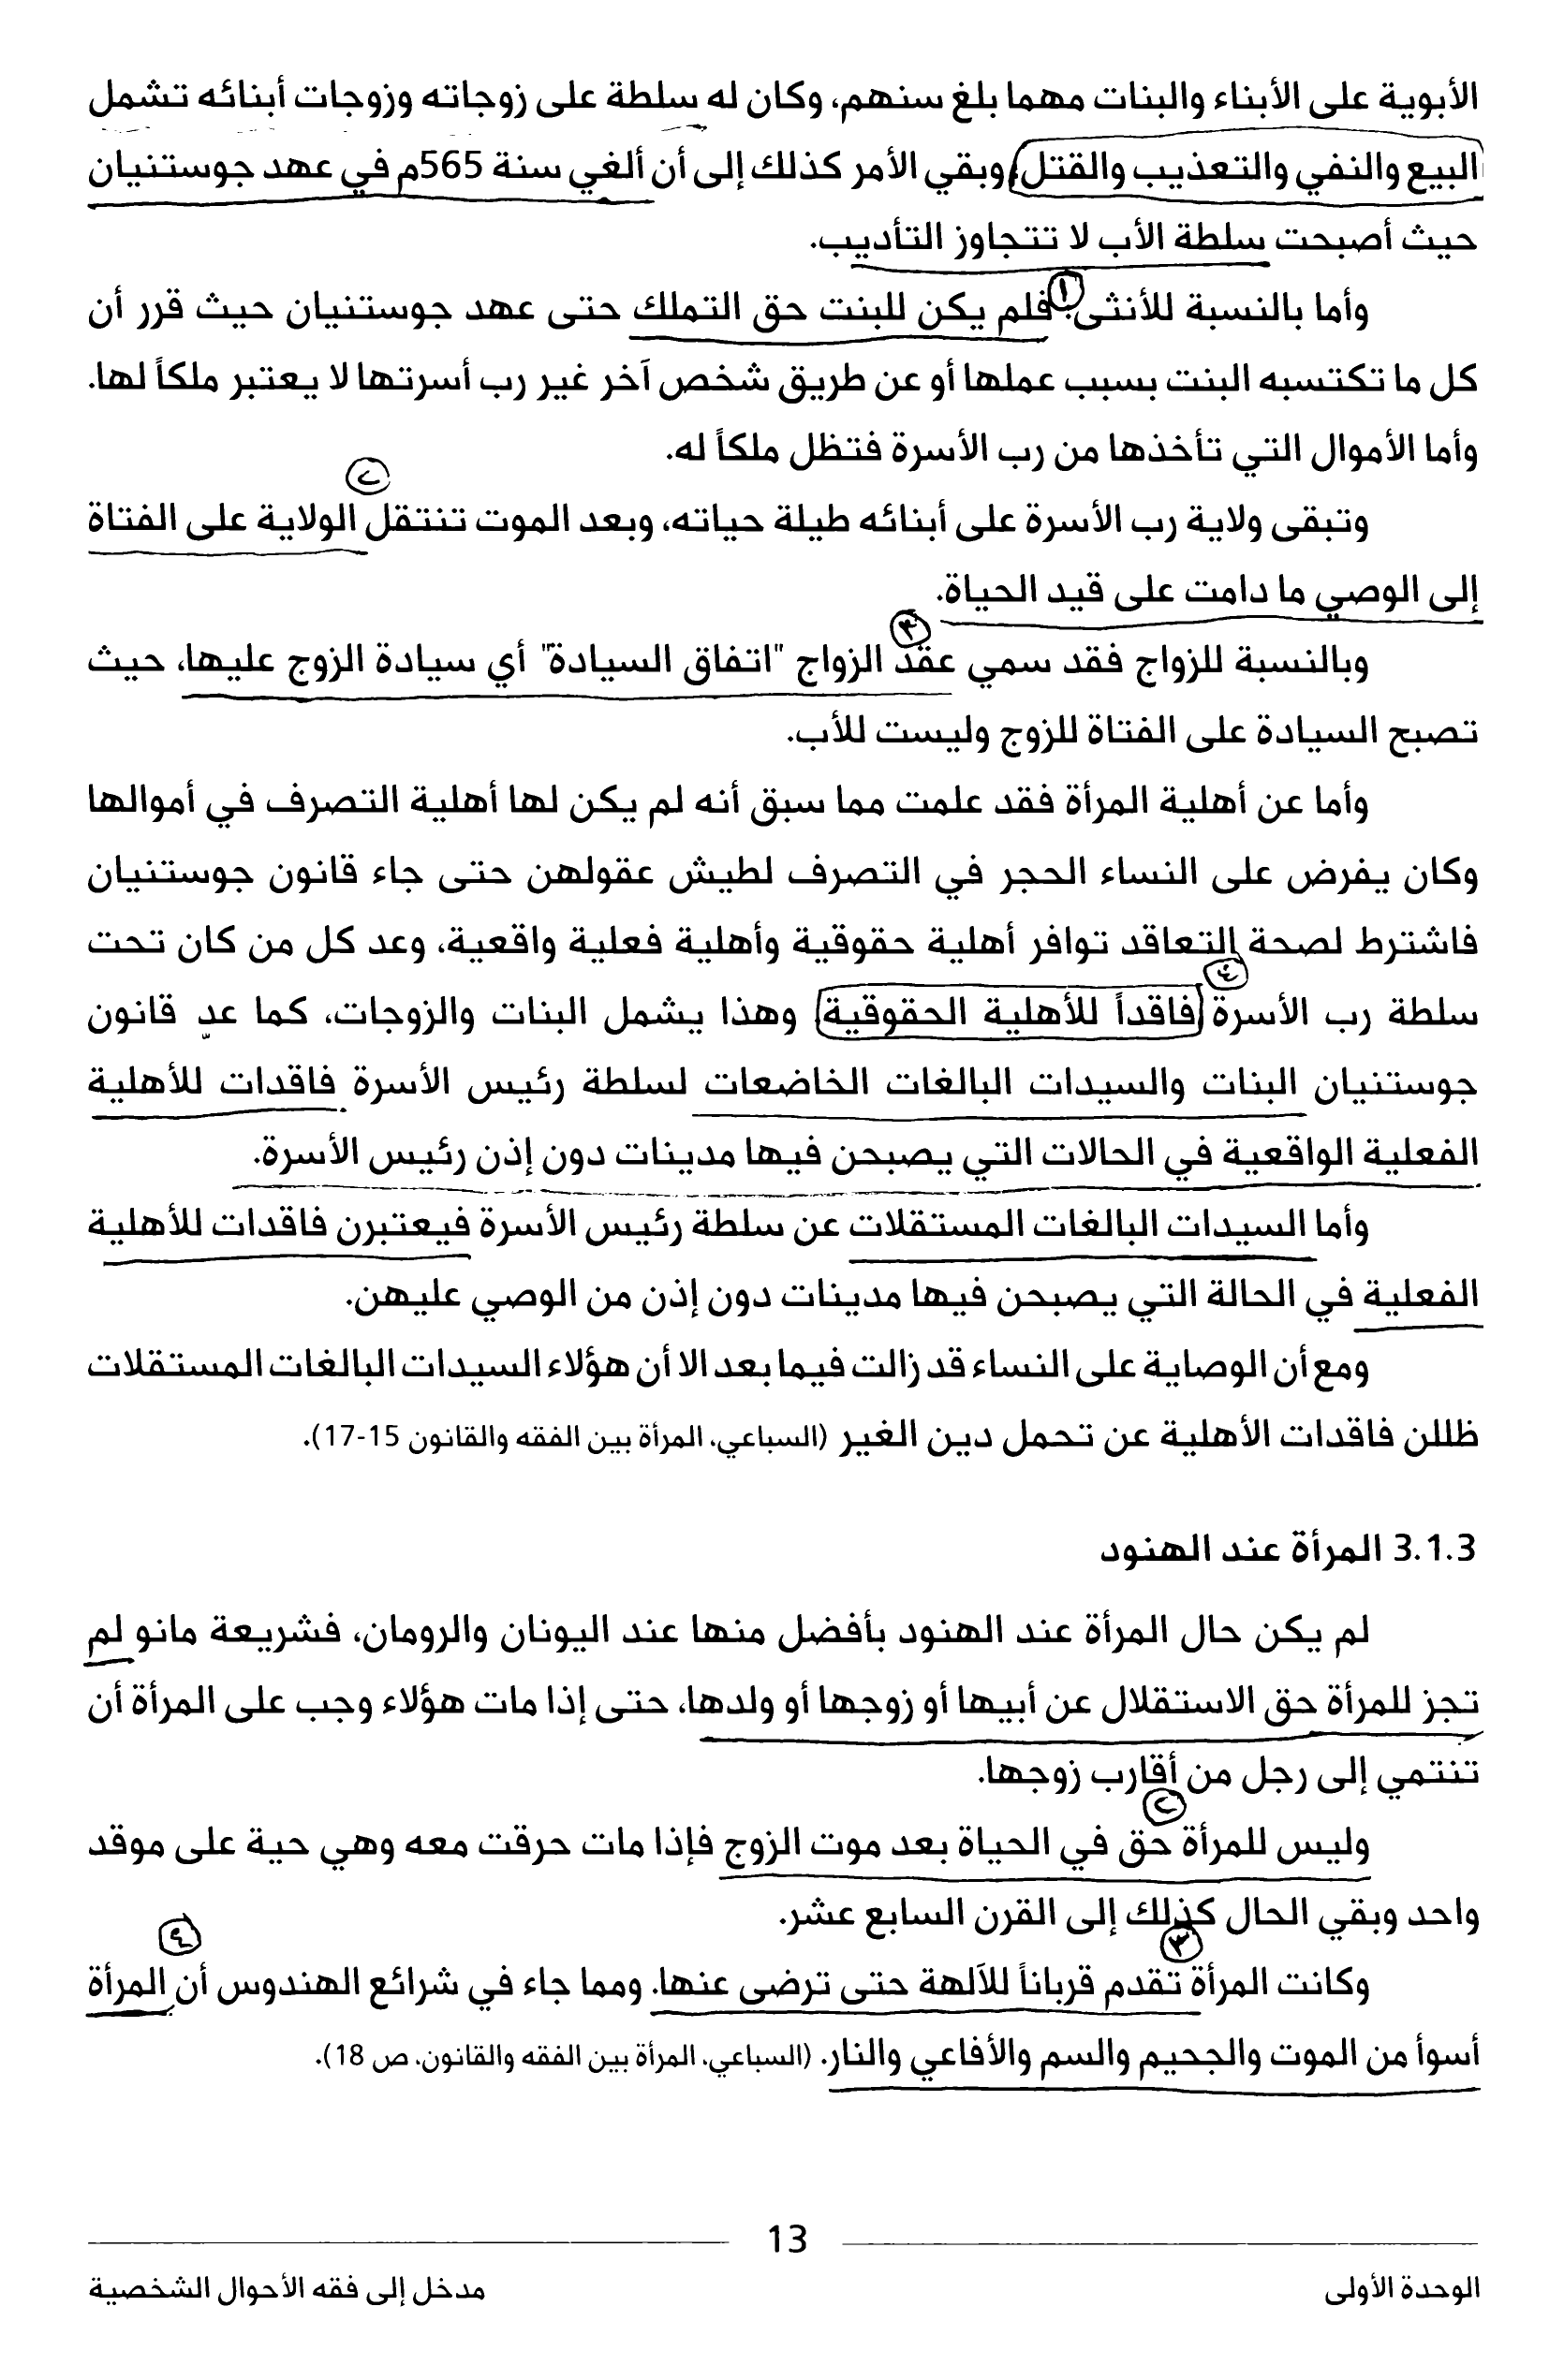 الأبوية على الأبناء والبنات مهما بلغ سنهم، وكان له سلطة على زوجاته وزوجات أبنائه تشمل
البيع والنفي والتعذيب والقتل، وبقي الأمر كذلك إلى أن ألغي سنة 565م في عهد جوستنيان
حيث أصبحت سلطة الأب لا تتجاوز التأديب.
١
وأما بالنسبة للأنثى: فلم يكن للبنت حق التملك حتى عهد جوستنيان حيث قرر أن
كل ما تكتسبه البنت بسبب عملها أو عن طريق شخص آخر غير رب أسرتها لا يعتبر ملكاً لها.
وأما الأموال التي تأخذها من رب الأسرة فتظل ملكاً له.
٢
وتبقى ولاية رب الأسرة على أبنائه طيلة حياته، وبعد الموت تنتقل الولاية على الفتاة
إلى الوصي ما دامت على قيد الحياة.
٣
وبالنسبة للزواج فقد سمي عقد الزواج "اتفاق السيادة" أي سيادة الزوج عليها، حيث
تصبح السيادة على الفتاة للزوج وليست للأب.
وأما عن أهلية المرأة فقد علمت مما سبق أنه لم يكن لها أهلية التصرف في أموالها
وكان يفرض على النساء الحجر في التصرف لطيش عقولهن حتى جاء قانون جوستنيان
فاشترط لصحة التعاقد توافر أهلية حقوقية وأهلية فعلية واقعية، وعد كل من كان تحت
٤
سلطة رب الأسرة فاقداً للأهلية الحقوقية وهذا يشمل البنات والزوجات، كما عد قانون
جوستنيان البنات والسيدات البالغات الخاضعات لسلطة رئيس الأسرة فاقدات للأهلية
الفعلية الواقعية في الحالات التي يصبحن فيها مدينات دون إذن رئيس الأسرة.
وأما السيدات البالغات المستقلات عن سلطة رئيس الأسرة فيعتبرن فاقدات للأهلية
الفعلية في الحالة التي يصبحن فيها مدينات دون إذن من الوصي عليهن.
ومع أن الوصاية على النساء قد زالت فيما بعد الا أن هؤلاء السيدات البالغات المستقلات
ظللن فاقدات الأهلية عن تحمل دين الغير (السباعي، المرأة بين الفقه والقانون 15-17).
3.1.3 المرأة عند الهنود
لم يكن حال المرأة عند الهنود بأفضل منها عند اليونان والرومان، فشريعة مانو لم
تجز للمرأة حق الاستقلال عن أبيها أو زوجها أو ولدها، حتى إذا مات هؤلاء وجب على المرأة أن
تنتمي إلى رجل من أقارب زوجها.
٢
وليس للمرأة حق في الحياة بعد موت الزوج فإذا مات حرقت معه وهي حية على موقد
واحد وبقي الحال كذلك إلى القرن السابع عشر.
٣ ٤
وكانت المرأة تقدم قرباناً للآلهة حتى ترضى عنها. ومما جاء في شرائع الهندوس أن المرأة
أسوأ من الموت والجحيم والسم والأفاعي والنار. (السباعي، المرأة بين الفقه والقانون، ص 18).
13
الوحدة الأولى
مدخل إلى فقه الأحوال الشخصية